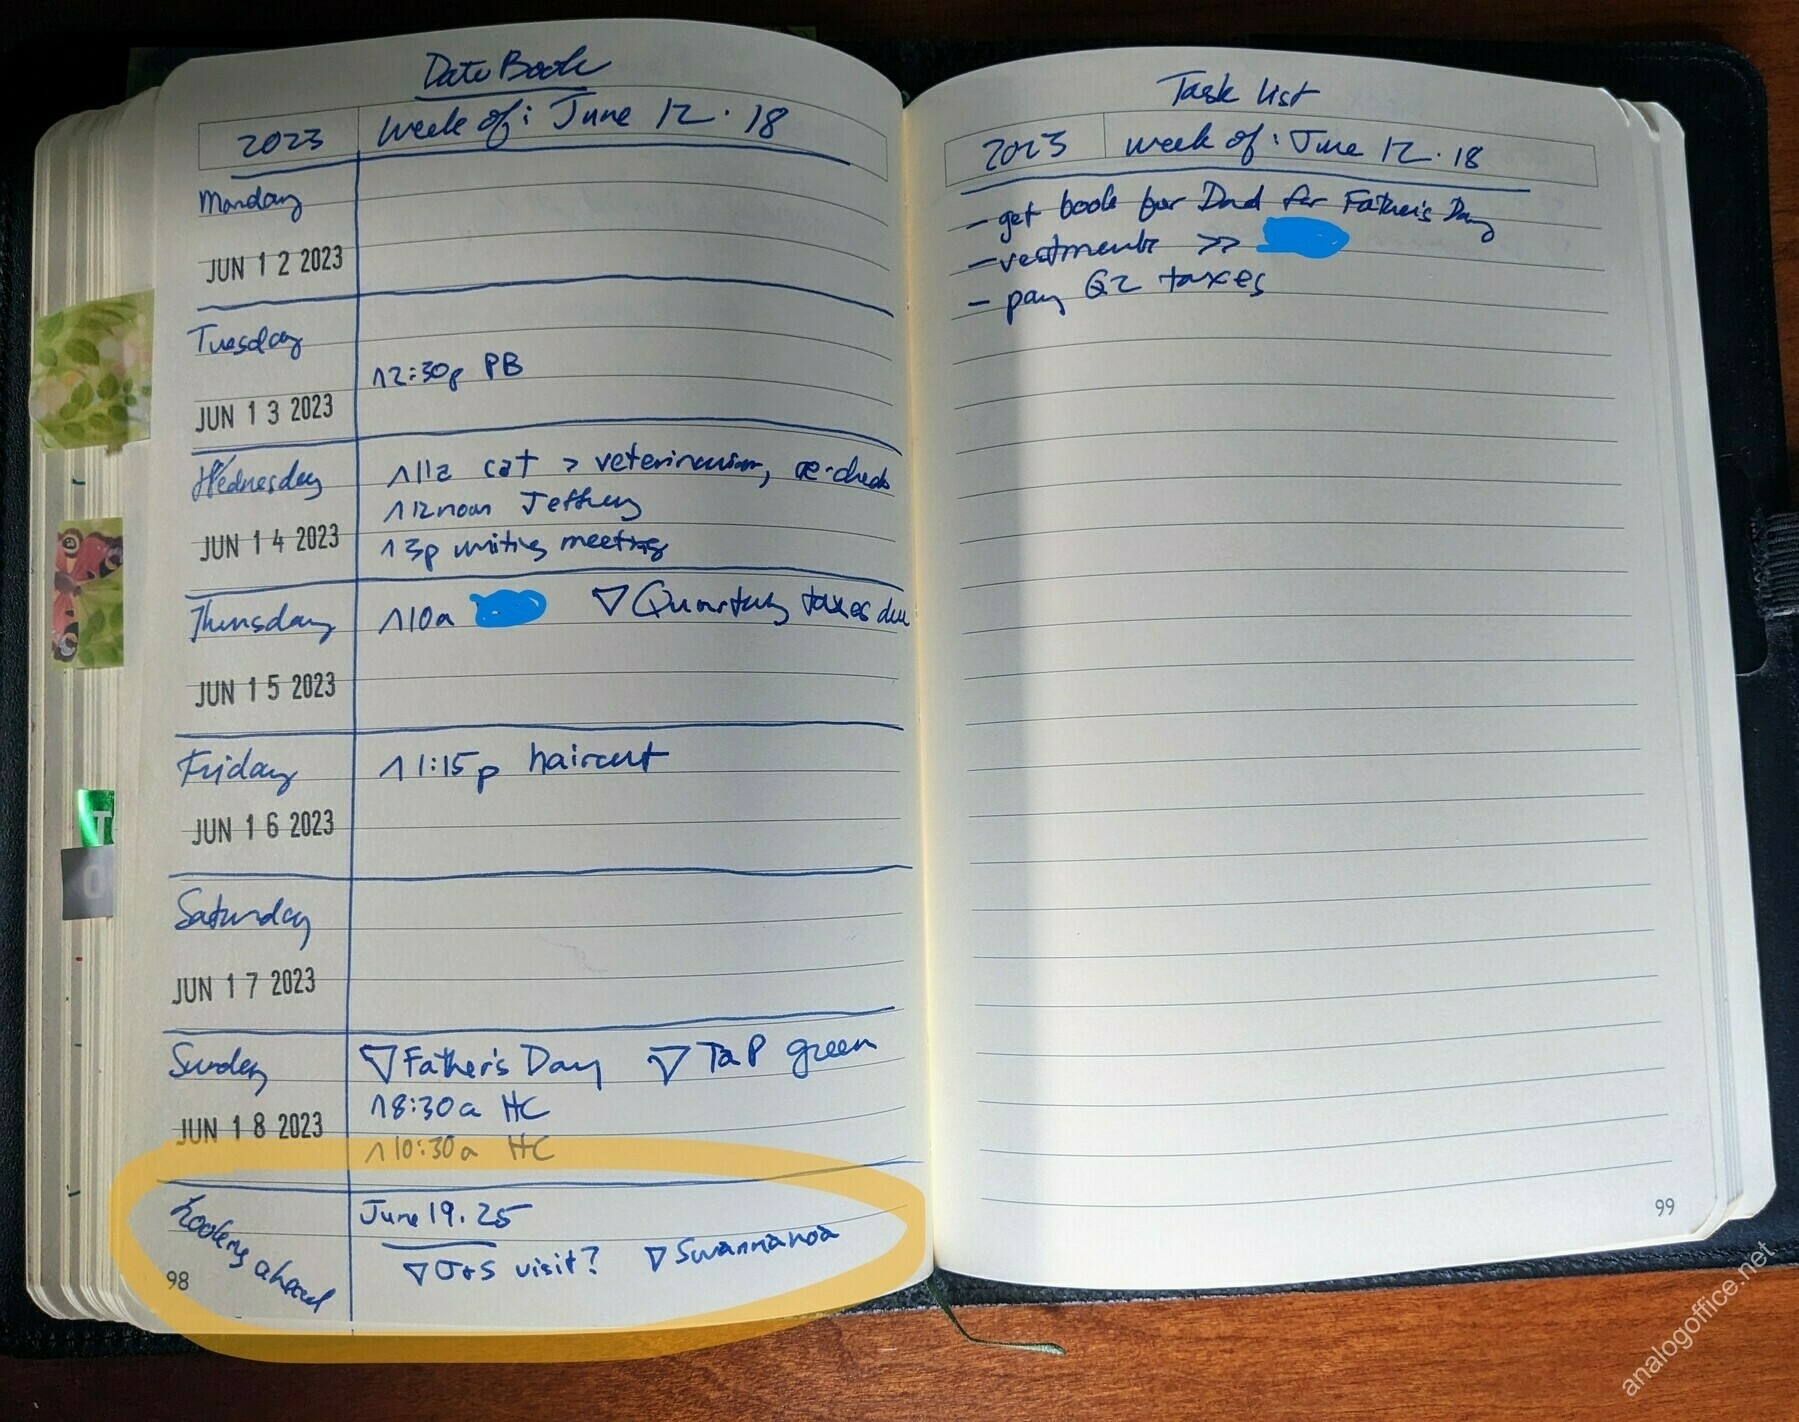 Date Book
2023 week of: June 12-18
Monday
JUN 1 2 2023
Tuesday
12:30p PB
JUN 1 3 2023
Wednesday
11a cat > veterinarian, re-check
12noon Jeffrey
JUN 1 4 2023
3p writing meeting
Thursday
10a ▽ Quarterly taxes due
JUN 1 5 2023
Friday
1:15p haircut
JUN 1 6 2023
Saturday
JUN 1 7 2023
Sunday
▽ Father's Day ▽ TaP green
8:30a HC
JUN 1 8 2023
10:30a HC
Looking ahead
June 19-25
▽ J+S visit? ▽ Swannanoa
98
Task List
2023 week of: June 12-18
- get book for Dad for Father's Day
- vestments >>
- pay Q2 taxes
99
T
O
analogoffice.net